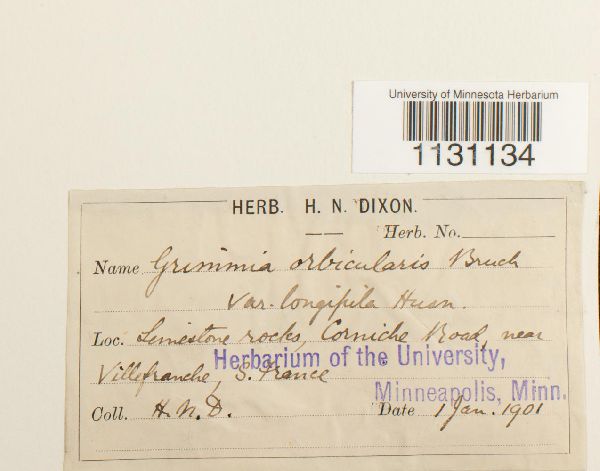 University of Minnesota Herbarium
1131134
HERB. H. N. DIXON.
Herb. No.
Name Grimmia orbicularis Bruch
var. longipila Husn.
Loc. Limestone rocks, Corniche Road, near
Villefranche, S. France
Herbarium of the University,
Minneapolis, Minn.
Coll. H. N. D. Date 1 Jan. 1901